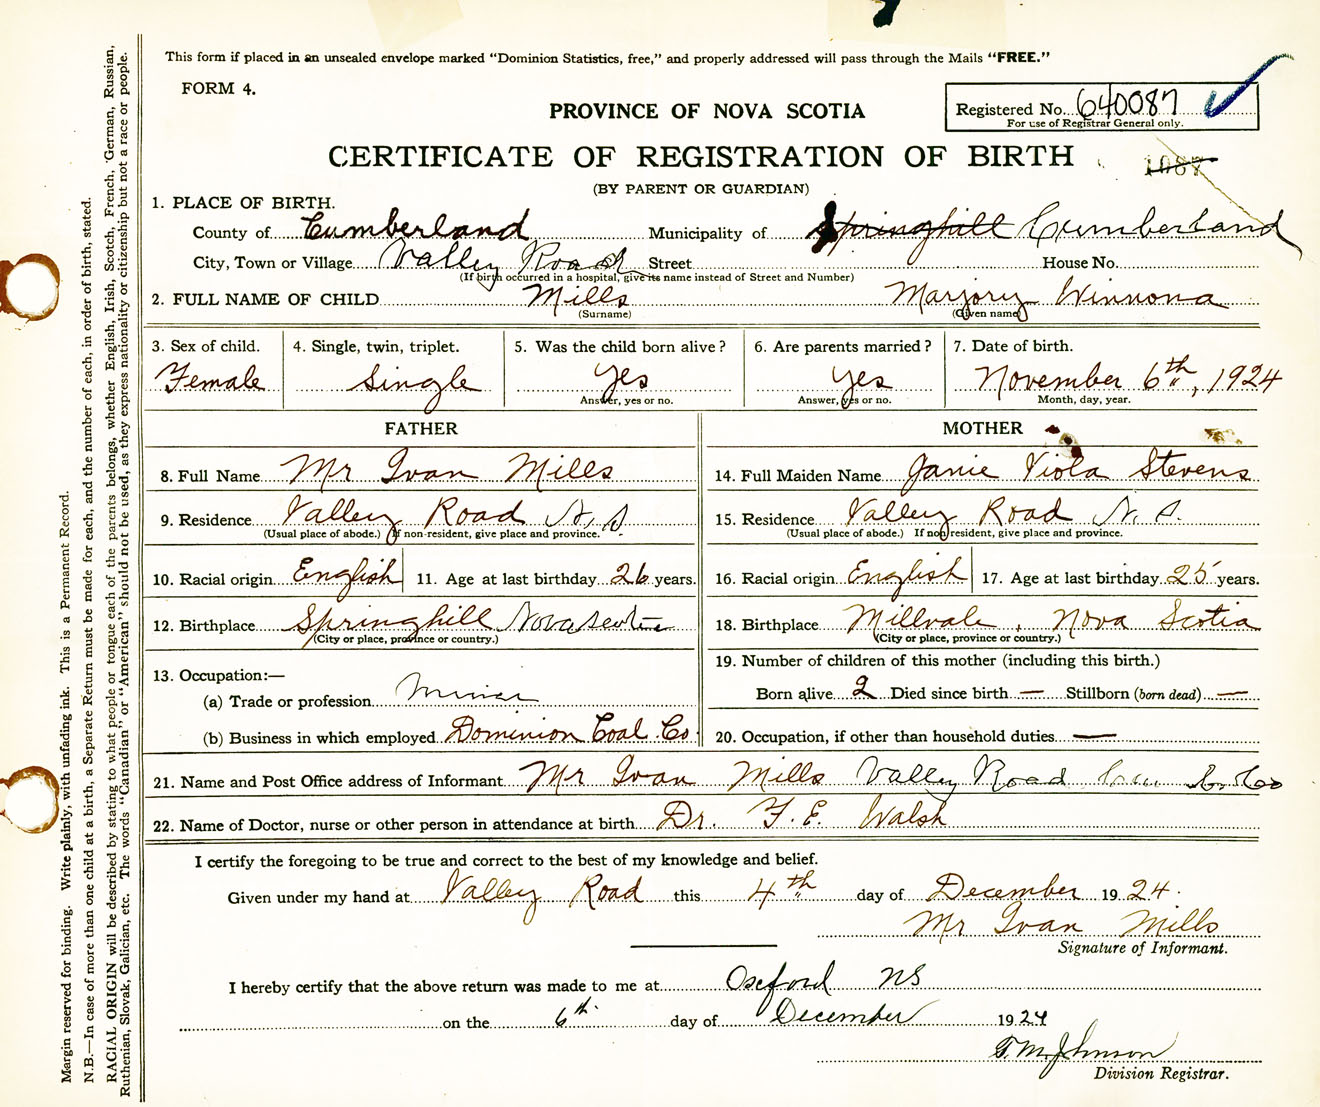 This form if placed in an unsealed envelope marked "Dominion Statistics, free," and properly addressed will pass through the Mails "FREE."
FORM 4.
Registered No. 640087
For use of Registrar General only.
PROVINCE OF NOVA SCOTIA
CERTIFICATE OF REGISTRATION OF BIRTH
1087
(BY PARENT OR GUARDIAN)
1. PLACE OF BIRTH.
County of Cumberland Municipality of Springhill Cumberland
City, Town or Village Valley Road Street House No.
(If birth occurred in a hospital, give its name instead of Street and Number)
2. FULL NAME OF CHILD Mills Marjory Winnona
(Surname) (Given name)
3. Sex of child. 4. Single, twin, triplet. 5. Was the child born alive? 6. Are parents married? 7. Date of birth.
Female Single Yes Yes November 6th, 1924
Answer, yes or no. Answer, yes or no. Month, day, year.
FATHER MOTHER
8. Full Name Mr Ivan Mills 14. Full Maiden Name Janie Viola Stevens
9. Residence Valley Road N.S. 15. Residence Valley Road N.S.
(Usual place of abode.) If non-resident, give place and province. (Usual place of abode.) If non-resident, give place and province.
10. Racial origin English 11. Age at last birthday 26 years. 16. Racial origin English 17. Age at last birthday 25 years.
12. Birthplace Springhill Nova Scotia 18. Birthplace Millvale, Nova Scotia
(City or place, province or country.) (City or place, province or country.)
13. Occupation:— 19. Number of children of this mother (including this birth.)
(a) Trade or profession Miner Born alive 2 Died since birth — Stillborn (born dead) —
(b) Business in which employed Dominion Coal Co. 20. Occupation, if other than household duties —
21. Name and Post Office address of Informant Mr Ivan Mills Valley Road Co
22. Name of Doctor, nurse or other person in attendance at birth Dr. F. E. Walsh
I certify the foregoing to be true and correct to the best of my knowledge and belief.
Given under my hand at Valley Road this 4th day of December 1924.
Mr Ivan Mills
Signature of Informant.
I hereby certify that the above return was made to me at Oxford NS
on the 6th. day of December 1924
T. M. Johnson
Division Registrar.
Margin reserved for binding. Write plainly, with unfading ink. This is a Permanent Record.
N.B.—In case of more than one child at a birth, a Separate Return must be made for each, and the number of each, in order of birth, stated.
RACIAL ORIGIN will be described by stating to what people or tongue each of the parents belongs, whether English, Irish, Scotch, French, German, Russian,
Ruthenian, Slovak, Galician, etc. The words "Canadian" or "American" should not be used, as they express nationality or citizenship but not a race or people.